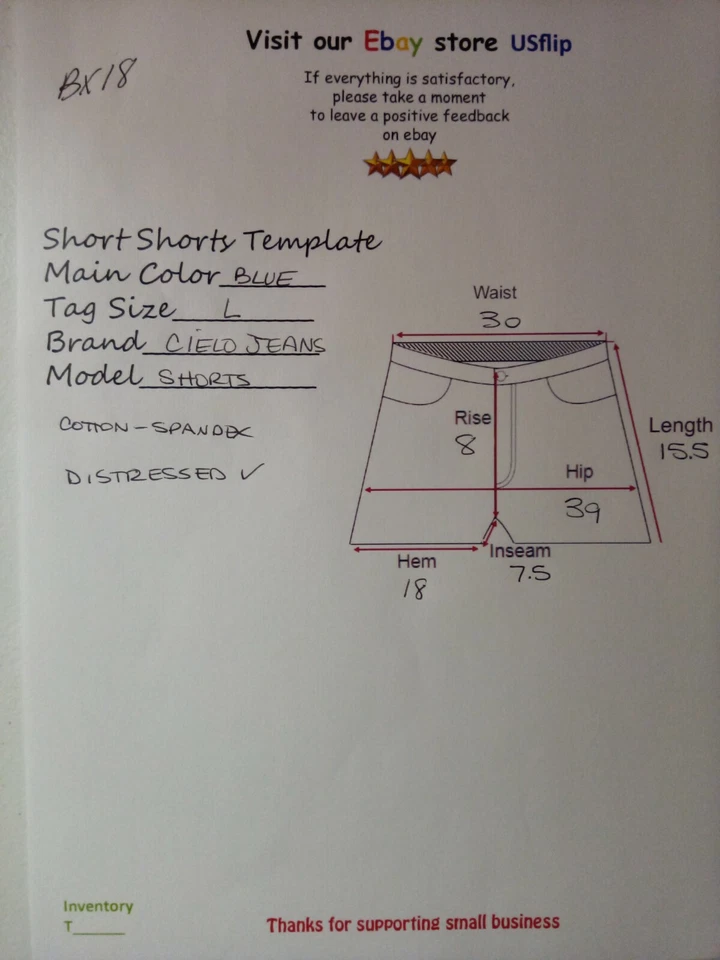 Visit our Ebay store USflip
BX18
If everything is satisfactory,
please take a moment
to leave a positive feedback
on ebay
Short Shorts Template
Main Color BLUE
Tag Size L
Brand CIELO JEANS
Model SHORTS
COTTON - SPANDEX
DISTRESSED ✓
Waist
30
Rise
8
Length
15.5
Hip
39
Inseam
7.5
Hem
18
Inventory
T______
Thanks for supporting small business